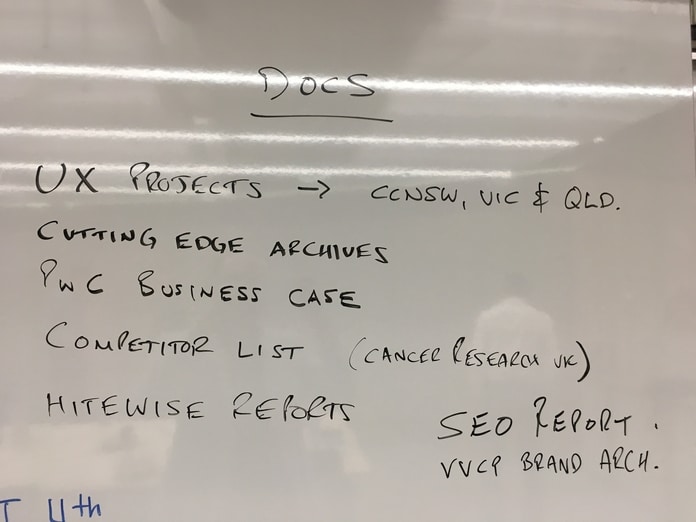 DOCS
UX PROJECTS → CCNSW, VIC & QLD.
CUTTING EDGE ARCHIVES
PWC BUSINESS CASE
COMPETITOR LIST (CANCER RESEARCH UK)
HITEWISE REPORTS
SEO REPORT.
VVCP BRAND ARCH.
T 4th